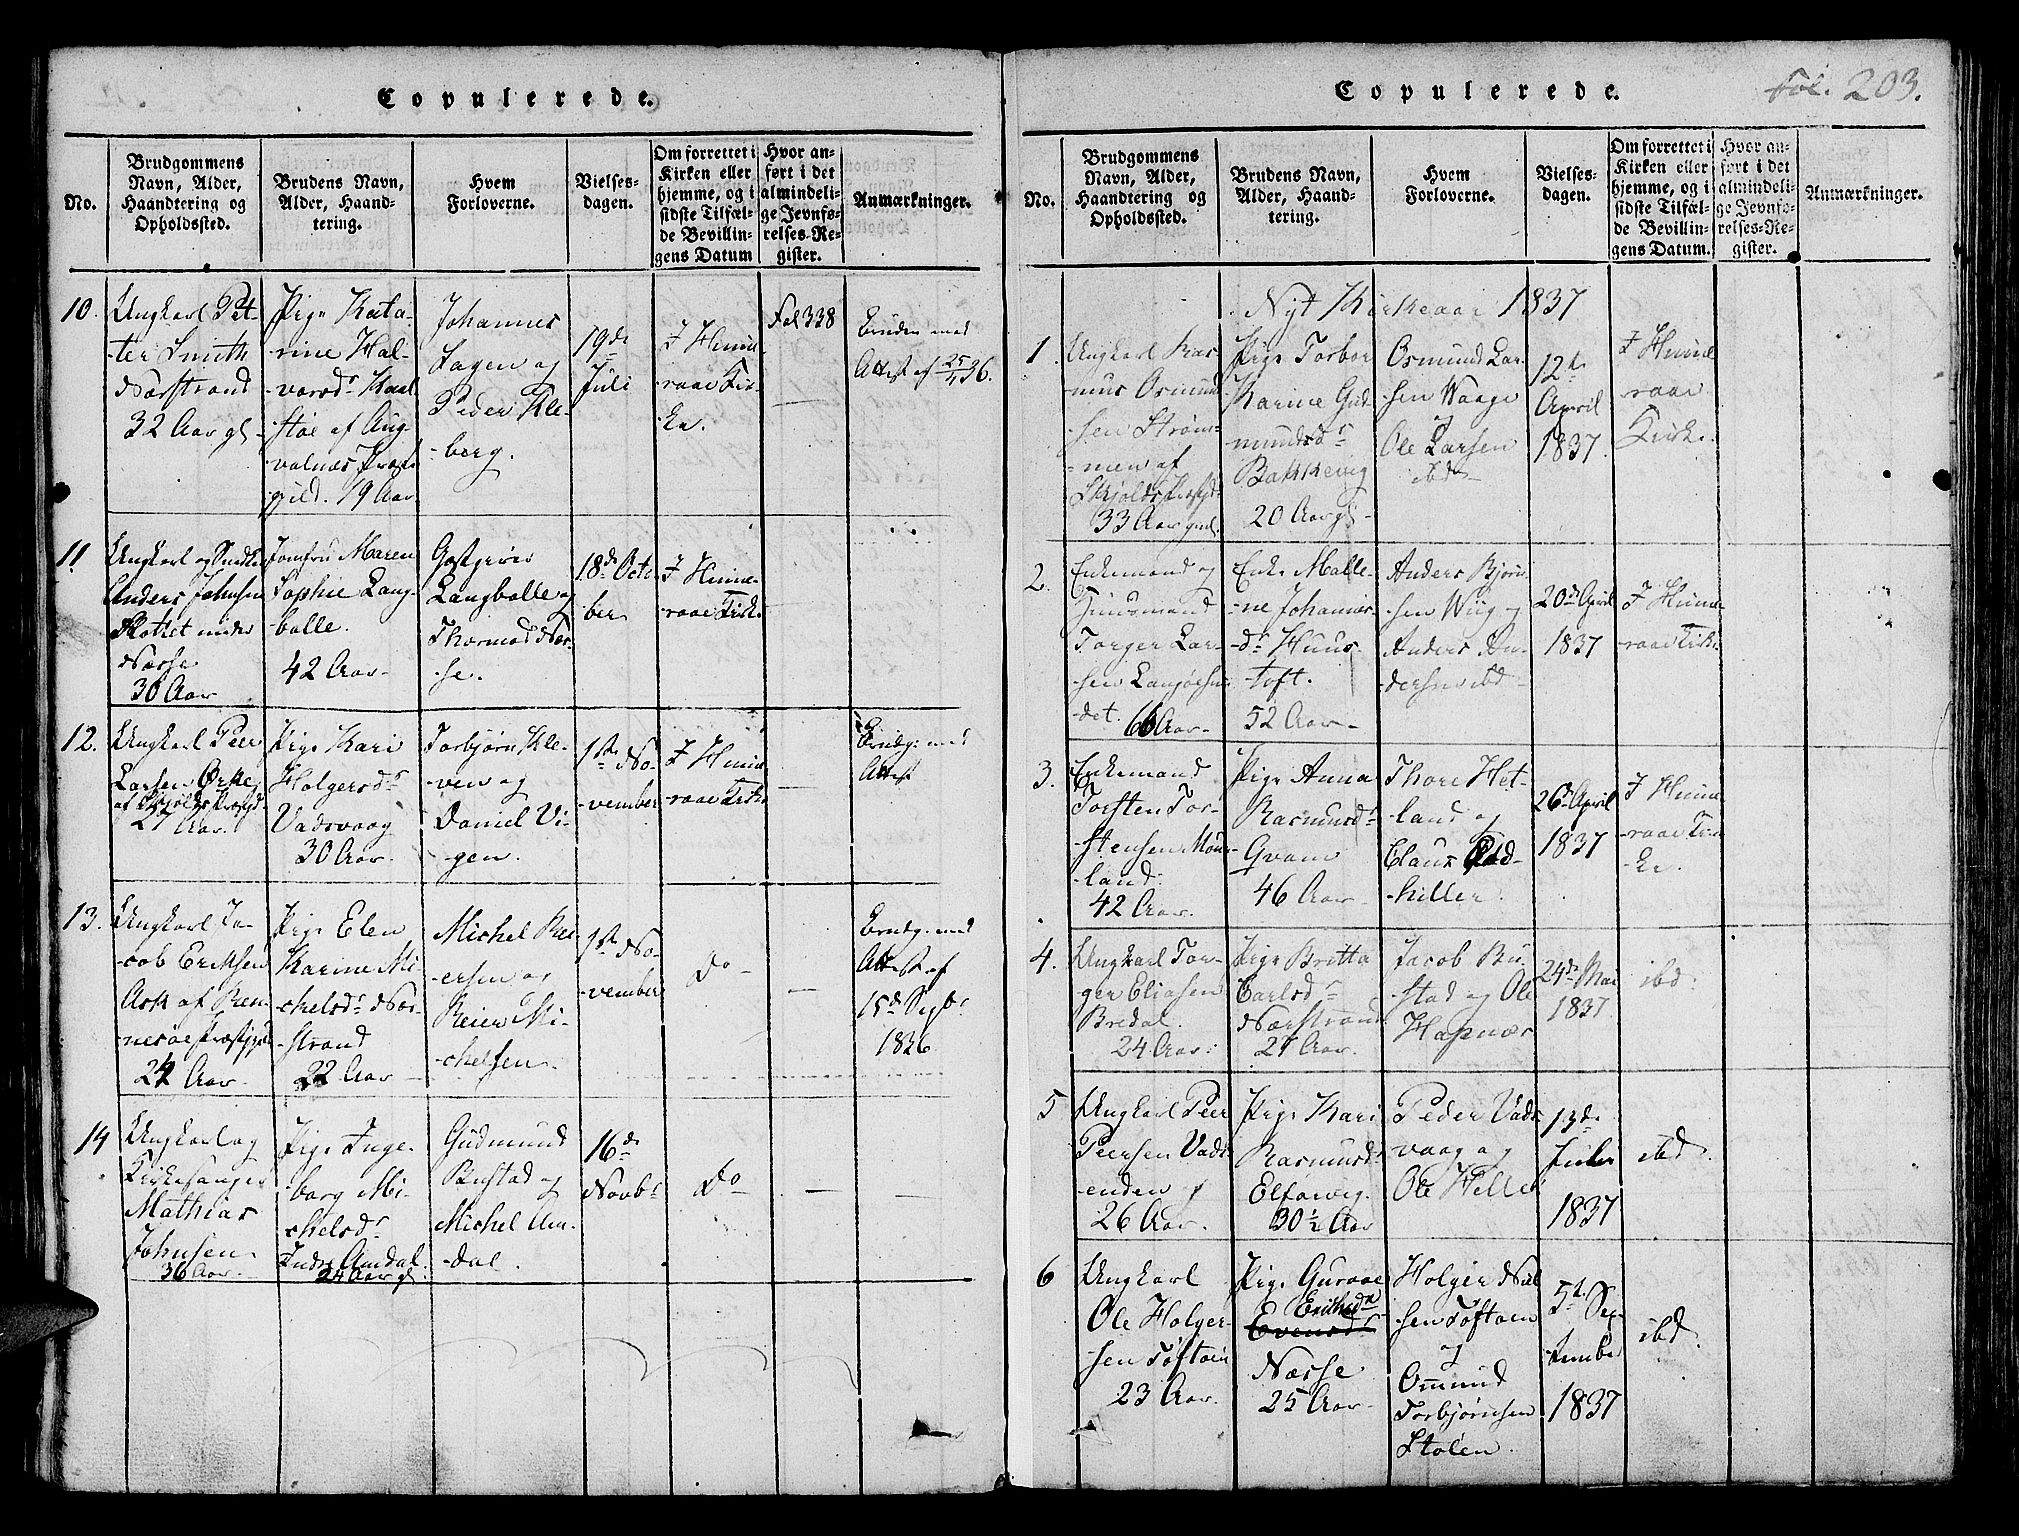 Copulerede.
No.
Brudgommens Navn, Alder, Haandtering og Opholdssted.
Brudens Navn, Alder, Haandtering.
Hvem Forloverne.
Vielsesdagen.
Om forrettet i Kirken eller hjemme, og i sidste Tilfælde Bevillingens Datum
Hvor anført i det almindelige Jevnførelses-Register.
Anmærkninger.
10.
Ungkarl Pet-
-ter Smith
Nærstrand
32 Aar gl
Pige Kata-
rine Hal-
vorsdr Kaal-
støe af Aug-
valnæs Præste-
gjeld. 19 Aar
Johannes
Fagen og
Peder Kle-
-berg.
19de
Juli
I Hinne-
-raae Kir-
-ke.
Fol 338
Bruden med
Attest af 25/4 36.
11
Ungkarl og
Anders Johnsen
Plottet under
Næsse
30 Aar
Jomfru Maren
Sophie Lang-
balle.
42 Aar-
Gastgiver
Langballe og
Thormod Næs-
-se.
18de Octo-
ber
I Hinne-
-raae Kirke
12.
Ungkarl Peer
Larsen Ørke
af Skjolds Præstgd
27 Aar.
Pige Kari
Holgersdr
Vadsvaag
30 Aar.
Torbjørn Kle-
ven og
Daniel Vi-
-gen.
1ste No-
-vember
I Hinne-
raae Kirke
Brudg: med
Attest
13.
Ungkarl Ja-
-cob Eriksen
Ask af Ren-
nesøe Præstgjeld
24 Aar.
Pige Elen
Karine Mi-
chelsdr Nær-
-strand
22 Aar
Michel Rei-
ersen og
Reier Mi-
chelsen.
1ste No-
-vember
Do
Brudg: med
Attest af
15de Septbr
1836
14
Ungkarl og
Kirkesanger
Mathias
Johnsen
36 Aar.
Pige Inge-
borg Mi-
chelsdr
Indre Amdal.
24 Aar gl.
Gudmund
Bustad og
Michel Am-
-dal.
16de
Novbr
Do
Copulerede.
Fol. 203.
No.
Brudgommens Navn, Alder, Haandtering og Opholdssted.
Brudens Navn, Alder, Haandtering.
Hvem Forloverne.
Vielsesdagen.
Om forrettet i Kirken eller hjemme, og i sidste Tilfælde Bevillingens Datum.
Hvor anført i det almindelige Jevnførelses-Register.
Anmærkninger.
Nyt Kirkeaar 1837
1.
Ungkarl Ras-
mus Osmund-
sen Strøm-
-men af
Skjolds Præstgd
33 Aar gml.
Pige Torbor
Karine Gud-
mundsdr
Bakkevig
20 Aar gl
Osmund Lar-
sen Waage
og
Ole Larsen
ibd
12te
April
1837.
I Hinne-
raae
Kirke.
2.
Enkemand og
Huusmand
Torger Lar-
sen
-det. 66 Aar-
Enke Malle-
-ne Johannes-
-dr Huus-
-toft.
52 Aar-
Anders Bjørn-
sen Wiig og
Anders An-
dersen ibd
20de April
1837
I Hinne-
raae Kirke
3.
Enkemand
Torsten Tor-
-stensen Møu-
-land.
42 Aar.
Pige Anna
Rasmusdr
Qvam
46 Aar
Thore Het-
-land og
Claus
hiller.
26de April
1837
I Hinne-
raae Kir-
ke.
4.
Ungkarl Tor-
ger Eliasen
Bredal.
24 Aar.
Pige Britta
Carlsdr
Nærstrand
27 Aar.
Jacob Bu-
stad og Ole
Hapnæs
24de Mai
1837
ibd:
5
Ungkarl Peer
Peersen Vads-
-enden
26 Aar.
Pige Kari
Rasmusdr
Elførvig.
30½ Aar
Peder Vads-
vaag og
Ole Hille
13de
Juli
1837
ibd.
6
Ungkarl
Ole Holger-
sen Toftøen
23 Aar.
Pige Guraae
Erichsdtr
Næsse
25 Aar.
Holger Niel-
sen Toftøen
og
Omund
Torbjørnsen
Stølen.
5te Sep-
tember
1837
ibd.